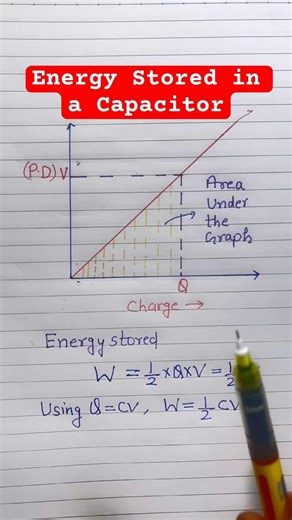 Energy Stored in
a Capacitor
(P.D) V
Area
Under
the
Graph
Q
Charge →
Energy stored
W = 1/2 × Q × V = 1/2
Using Q = CV, W = 1/2 CV